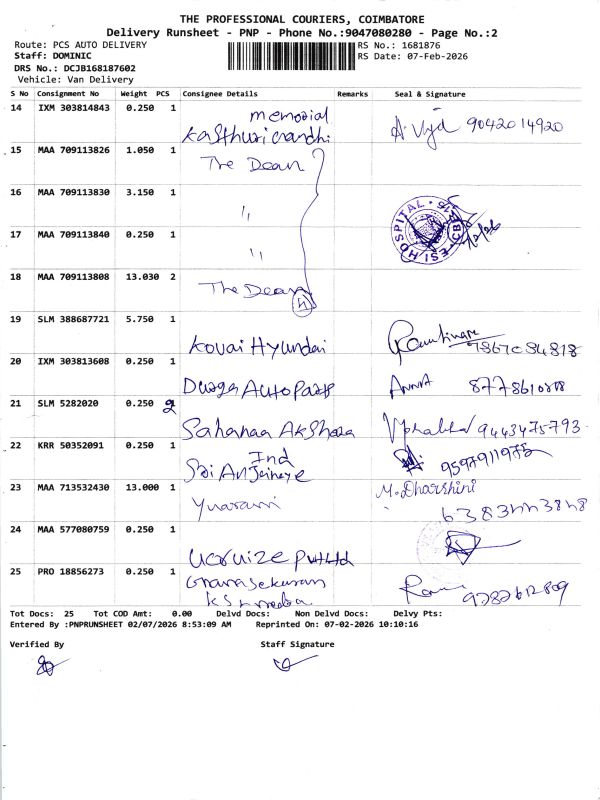 THE PROFESSIONAL COURIERS, COIMBATORE
Delivery Runsheet - PNP - Phone No.:9047080280 - Page No.:2
Route: PCS AUTO DELIVERY RS No.: 1681876
Staff: DOMINIC RS Date: 07-Feb-2026
DRS No.: DCJB168187602
Vehicle: Van Delivery
S No Consignment No Weight PCS Consignee Details Remarks Seal & Signature
14 IXM 303814843 0.250 1 memorial
Kasthuri 9042014920
15 MAA 709113826 1.050 1 The Dean
16 MAA 709113830 3.150 1 "
ESI HOSPITAL CBE
17 MAA 709113840 0.250 1 "
18 MAA 709113808 13.030 2 The Dean
4
19 SLM 388687721 5.750 1
Kovai Hyundai
20 IXM 303813608 0.250 1
Durga Auto Parts
21 SLM 5282020 0.250 2
Sahanaa Akshaya 9443475793
22 KRR 50352091 0.250 1 Ind
Sri Anjaneye 9597911972
23 MAA 713532430 13.000 1 M. Dharshini
24 MAA 577080759 0.250 1
25 PRO 18856273 0.250 1
Gnanasekaran
Tot Docs: 25 Tot COD Amt: 0.00 Delvd Docs: Non Delvd Docs: Delvy Pts:
Entered By :PNPRUNSHEET 02/07/2026 8:53:09 AM Reprinted On: 07-02-2026 10:10:16
Verified By Staff Signature